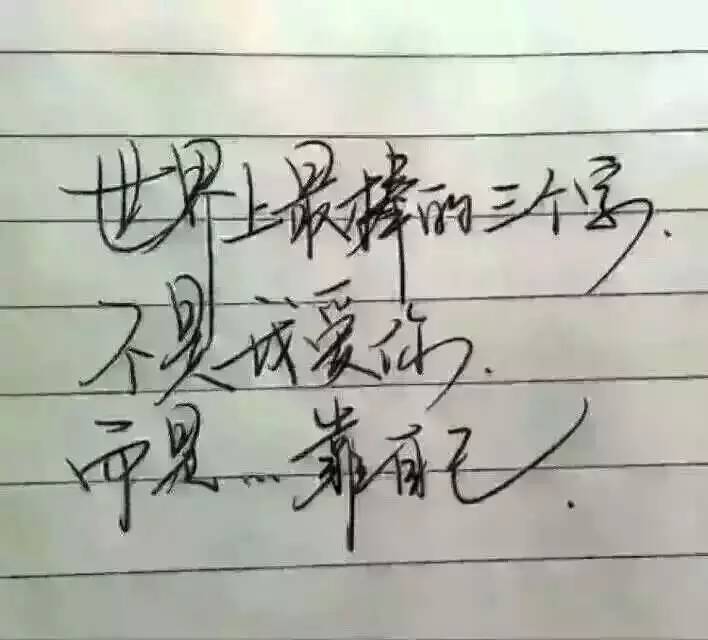 世界上最棒的三个字.
不是...我爱你.
而是...靠自己.